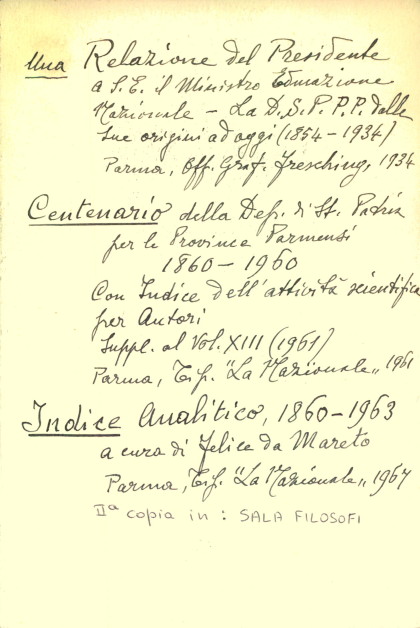 Una Relazione del Presidente
a S.E. il Ministro Educazione
Nazionale - La D.S.P.P.P. dalle
sue origini ad oggi (1854-1934)
Parma, Off. Graf. Fresching, 1934
Centenario della Dep. di St. Patria
per le Province Parmensi
1860-1960
Con Indice dell'attività scientifica
per Autori
Suppl. al Vol. XIII (1961)
Parma, Tip. "La Nazionale", 1961
Indice Analitico, 1860-1963
a cura di Felice da Mareto
Parma, Tip. "La Nazionale", 1967
IIª copia in : SALA FILOSOFI